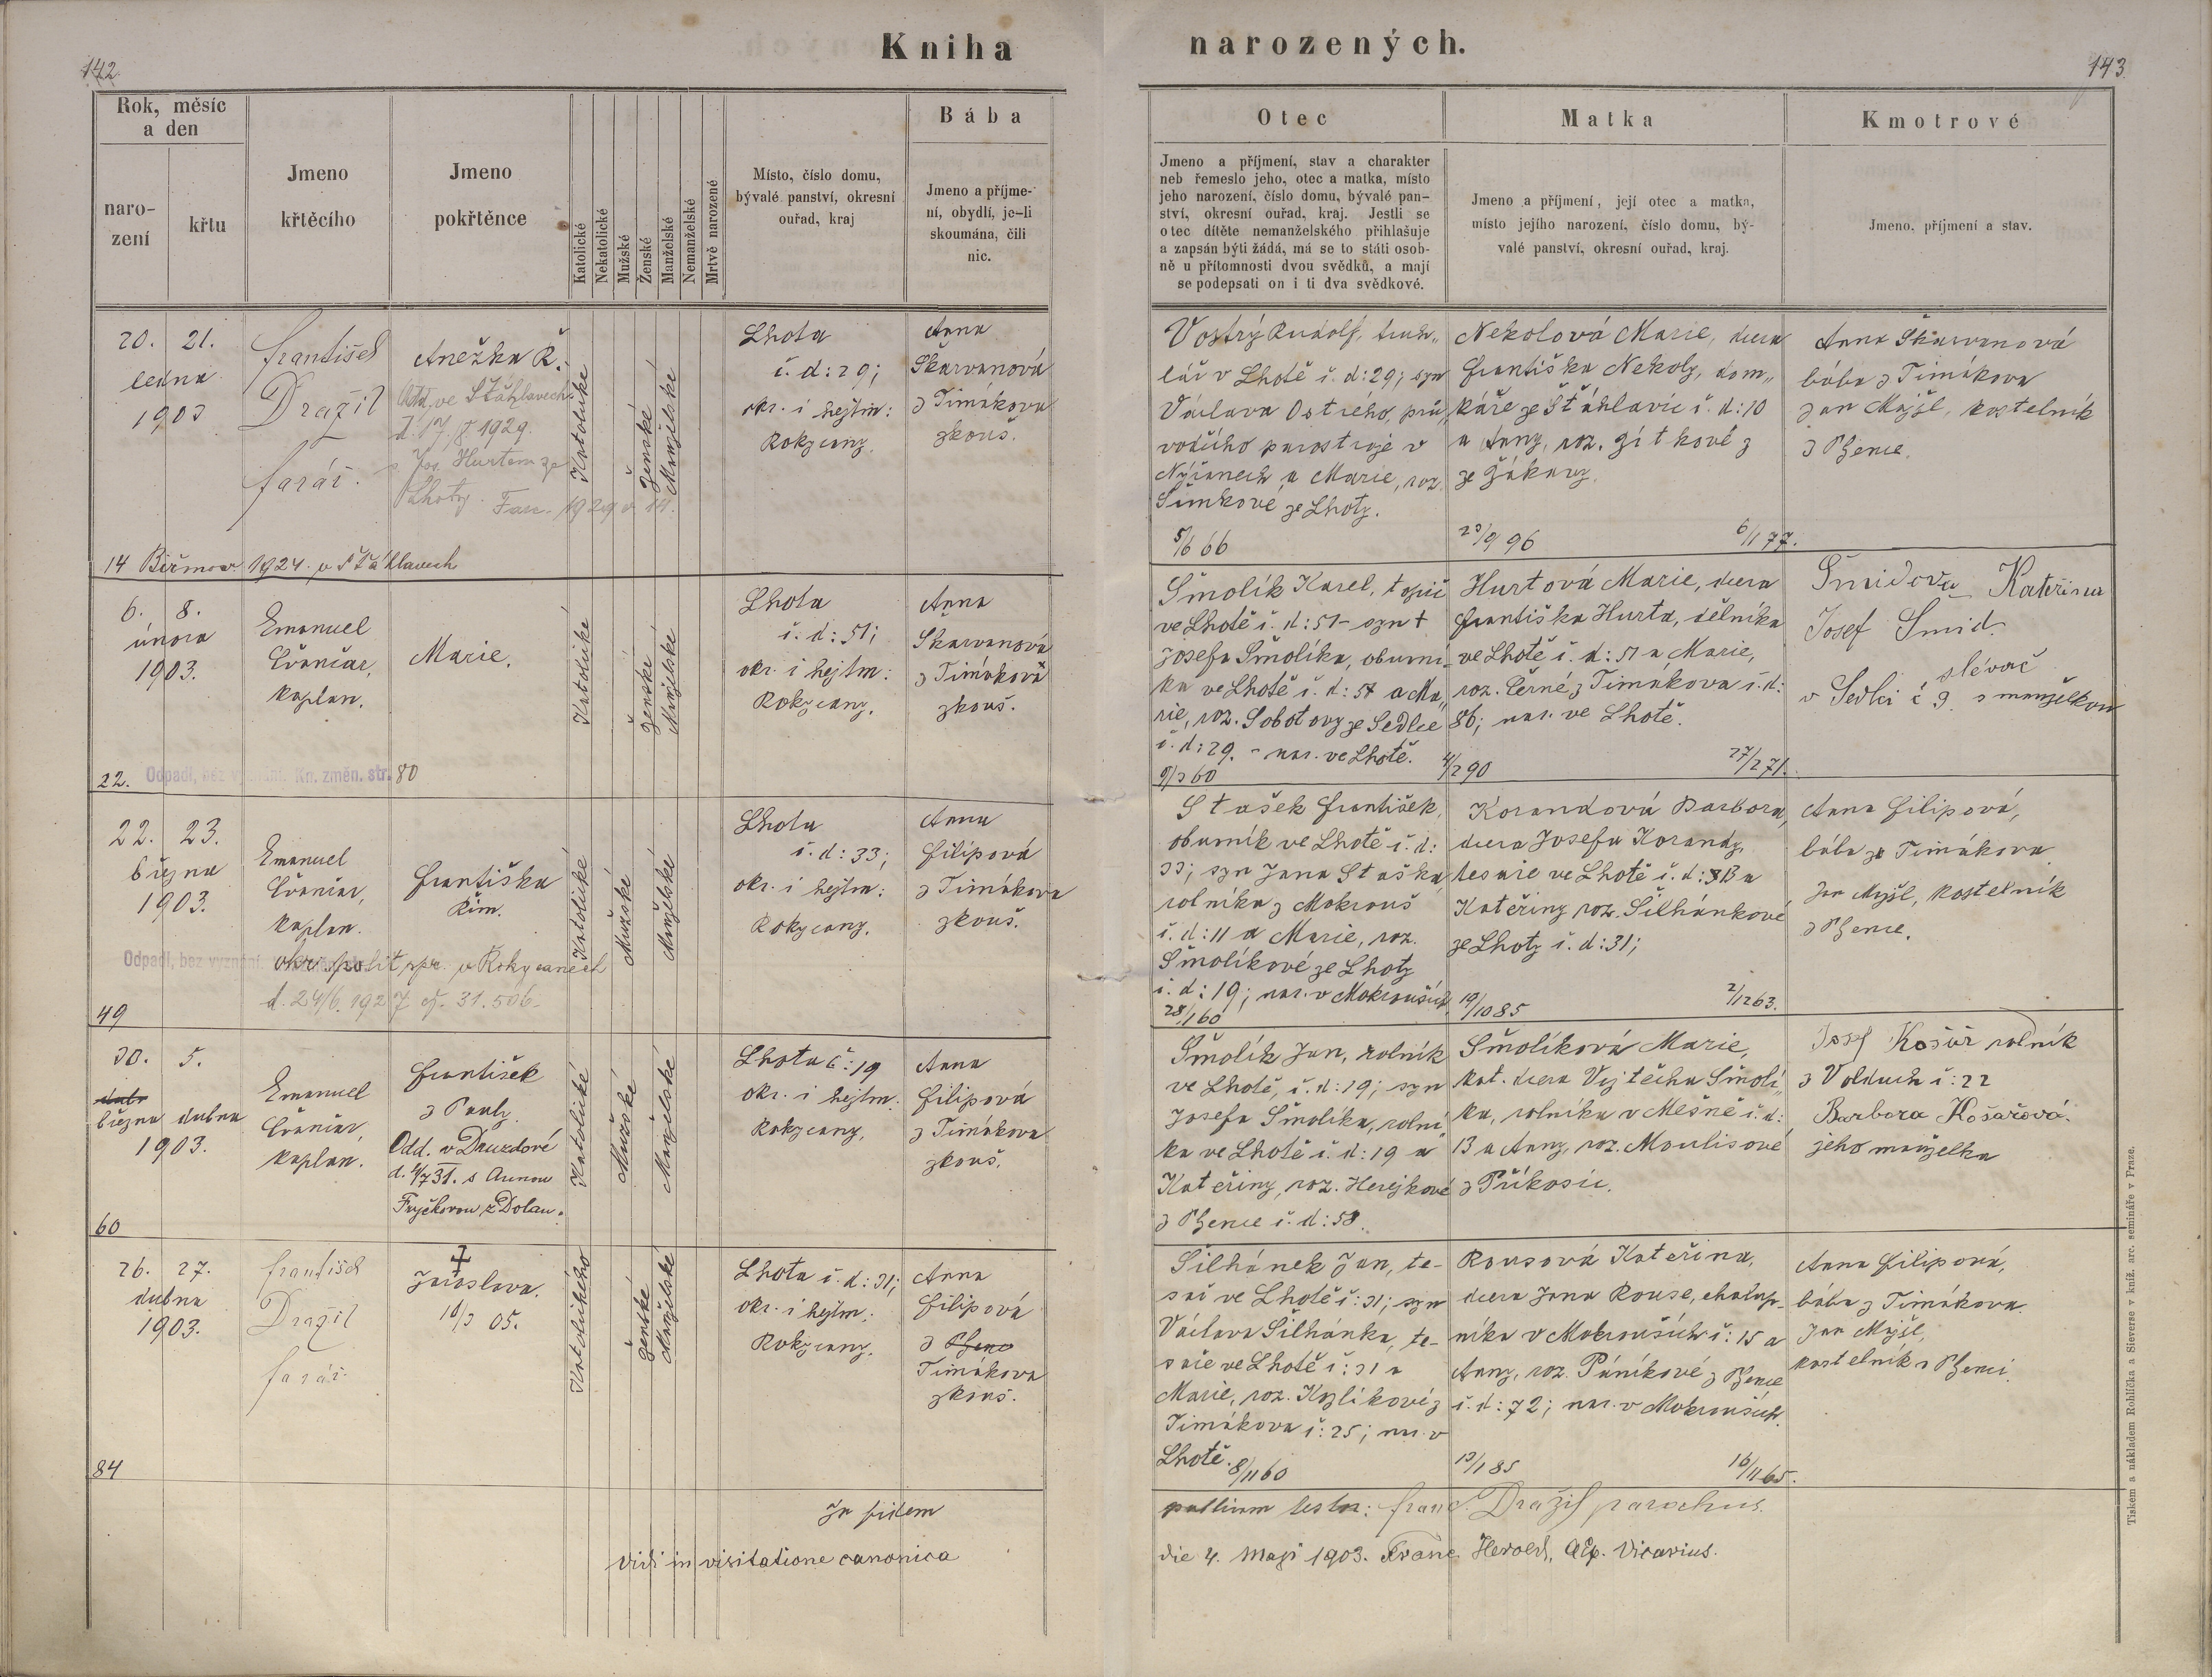 142.
Kniha narozených.
143.
Rok, měsíc
a den
naro-
zení
křtu
Jmeno
křtěcího
Jmeno
pokřtěnce
Katolické
Nekatolické
Mužské
Ženské
Manželské
Nemanželské
Mrtvě narozené
Místo, číslo domu,
bývalé panství, okresní
ouřad, kraj
Bába
Jmeno a příjme-
ní, obydlí, je-li
skoumána, čili
nic.
Otec
Jmeno a příjmení, stav a charakter
neb řemeslo jeho, otec a matka, místo
jeho narození, číslo domu, bývalé pan-
ství, okresní ouřad, kraj. Jestli se
otec dítěte nemanželského přihlašuje
a zapsán býti žádá, má se to státi osob-
ně u přítomnosti dvou svědků, a mají
se podepsati on i ti dva svědkové.
Matka
Jmeno a příjmení, její otec a matka,
místo jejího narození, číslo domu, bý-
valé panství, okresní ouřad, kraj.
Kmotrové
Jmeno, příjmení a stav.
20. 21.
ledna
1903
František
Dražil
farář.
Anežka Ř.
Odd. ve Šťáhlavech
d. 17/8. 1929.
s Jos. Hurtem ze
Lhoty. Fasc. 1929 č. 14.
Katolické
Ženské
Manželské
Lhota
č. d: 29;
okr. i hejtm:
Rokycany.
Anna
Škarvanová
z Timákova
zkouš.
Vostrý Rudolf, truh„
lář v Lhotě č. d: 29; syn
Václava Ostrého, prů„
vodčího parostroje v
Nýřanech a Marie, roz.
Šimkové ze Lhoty.
5/6 66
Nekolová Marie, dcera
Františka Nekoly, dom„
káře ze Šťáhlavic č. d: 10
a Anny, roz. Zítkové z
ze Žákavy.
23/9 96
6/1 77.
Anna Škarvanová
bába z Timákova
Jan Mýzl, kostelník
z Pženic.
14 Biřmov. 1924. v Šťáhlavech
6. 8.
února
1903.
Emanuel
Čvančar,
kaplan.
Marie.
Katolické
Ženské
Manželské
Lhota
č. d: 51;
okr. i hejtm:
Rokycany.
Anna
Škarvanová
z Timákova
zkouš.
Šmolík Karel, topič
ve Lhotě č. d: 51 - syn †
Josefa Šmolíka, obuvní-
ka ve Lhotě č. d: 54 a Ma„
rie, roz. Sobotovy ze Sedlce
č. d: 29. - nar. ve Lhotě.
9/3 60
Hurtová Marie, dcera
Františka Hurta, dělníka
ve Lhotě č. d: 51 a Marie,
roz. Černé z Timákova č. d:
86; nar. ve Lhotě.
4/2 90
27/2 71.
Šmidova Kateřina
Josef Šmid
slévač
v Sedlci č 9. s manželkou
22. Odpadl, bez vyznání. Kn. změn. str. 80
22. 23.
března
1903.
Emanuel
Čvančar,
kaplan.
Františka
Řím.
Katolické
Mužské
Manželské
Lhota
č. d: 33;
okr. i hejtm:
Rokycany.
Anna
Filipová
z Timákova
zkouš.
Stašek František,
obuvník ve Lhotě č. d:
33; syn Jana Staška
rolníka z Mokrouš
č. d: 11 a Marie, roz.
Šmolíkové ze Lhoty
č. d: 19; nar. v Mokrouších
28/1 60
Korandová Barbora,
dcera Josefa Korandy,
tesaře ve Lhotě č. d: 33 a
Kateřiny roz. Šilhánkové
ze Lhoty č. d: 31;
19/10 85
2/12 63.
Anna Filipová,
bába ze Timákova.
Jan Mýzl, kostelník
z Pženic.
Odpadl, bez vyznání. okr. polit. spr. v Rokycanech
d. 24/6. 1927 čj. 31.506.
49
30. 5.
března dubna
1903.
Emanuel
Čvančar,
kaplan.
František
z Pauly.
Odd. v Druzdové
d. 4/7 31. s Annou
Fryčkovou z Dolan.
Katolické
Mužské
Manželské
Lhota č: 19
okr. i hejtm.
Rokycany.
Anna
Filipová
z Timákova
zkouš.
Šmolík Jan, rolník
ve Lhotě, č. d: 19; syn
Josefa Šmolíka, rolní„
ka ve Lhotě č. d: 19 a
Kateřiny, roz. Herejkové
z Pženic č. d: 58.
Šmolíková Marie,
kat. dcera Vojtěcha Šmolí„
ka, rolníka v Mešně č. d:
13 a Anny, roz. Moulisové
z Příkosic.
Josef Košůř rolník
z Volduch č: 22
Barbora Košařová.
jeho manželka
60
26. 27.
dubna
1903.
František
Dražil
farář.
†
Jaroslava.
10/3 05.
Katolického
Ženské
Manželské
Lhota č. d: 31;
okr. i hejtm.
Rokycany.
Anna
Filipová
z Pženc
Timákova
zkouš.
Šilhánek Jan, te-
sař ve Lhotě č: 31; syn
Václava Šilhánka, te-
saře ve Lhotě č: 31 a
Marie, roz. Kozlíkové z
Timákova č: 25; nar. v
Lhotě. 8/11 60
Rousová Kateřina,
dcera Jana Rouse, chalup-
níka v Mokrouších č: 15 a
Anny, roz. Páníkové z Pženic
č. d: 72; nar. v Mokrouších.
13/1 85
16/11 65.
Anna Filipová,
bába z Timákova.
Jan Mýzl,
kostelník v Pženci.
84
In fidem
pallium testor: Franc. Dražil parochus.
Vidi in visitatione canonica
die 4. Maji 1903. Franc. Herold, Aep. Vicarius.
Tiskem a nákladem Rohlíčka a Sieverse v kníž. arc. semináře v Praze.